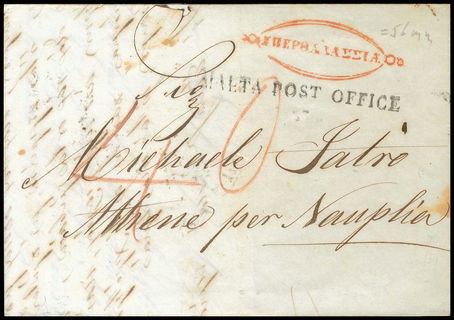 =56 mm
ΥΠΕΡΘΑΛΑΣΣΙΑ
MALTA POST OFFICE
Sig
40
Michaele Iatro
Athene per Nauplia